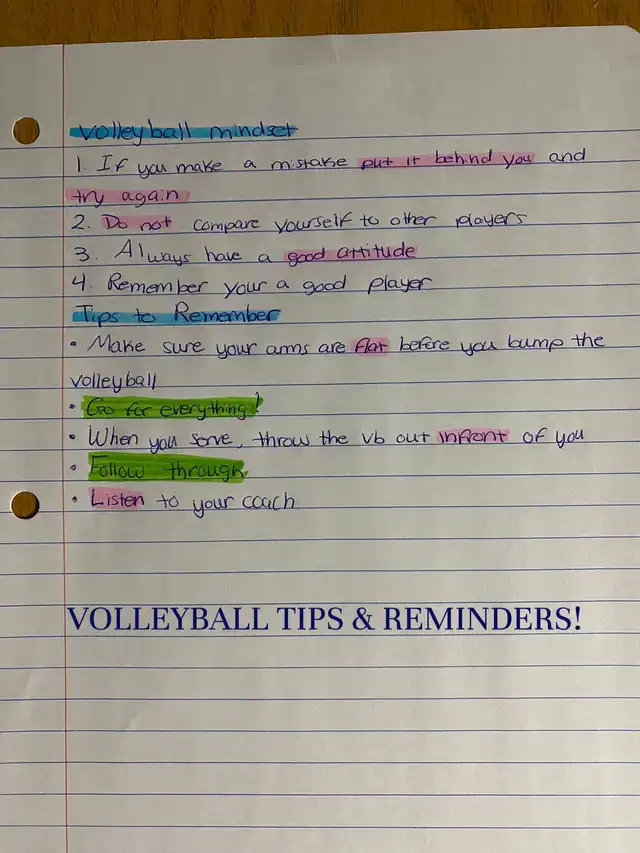 Volleyball mindset
1. If you make a mistake put it behind you and
try again
2. Do not compare yourself to other players
3. Always have a good attitude
4. Remember your a good player
Tips to Remember
• Make sure your arms are flat before you bump the
volleyball
• Go for everything!
• When you serve, throw the vb out infront of you
• Follow through
• Listen to your coach
VOLLEYBALL TIPS & REMINDERS!